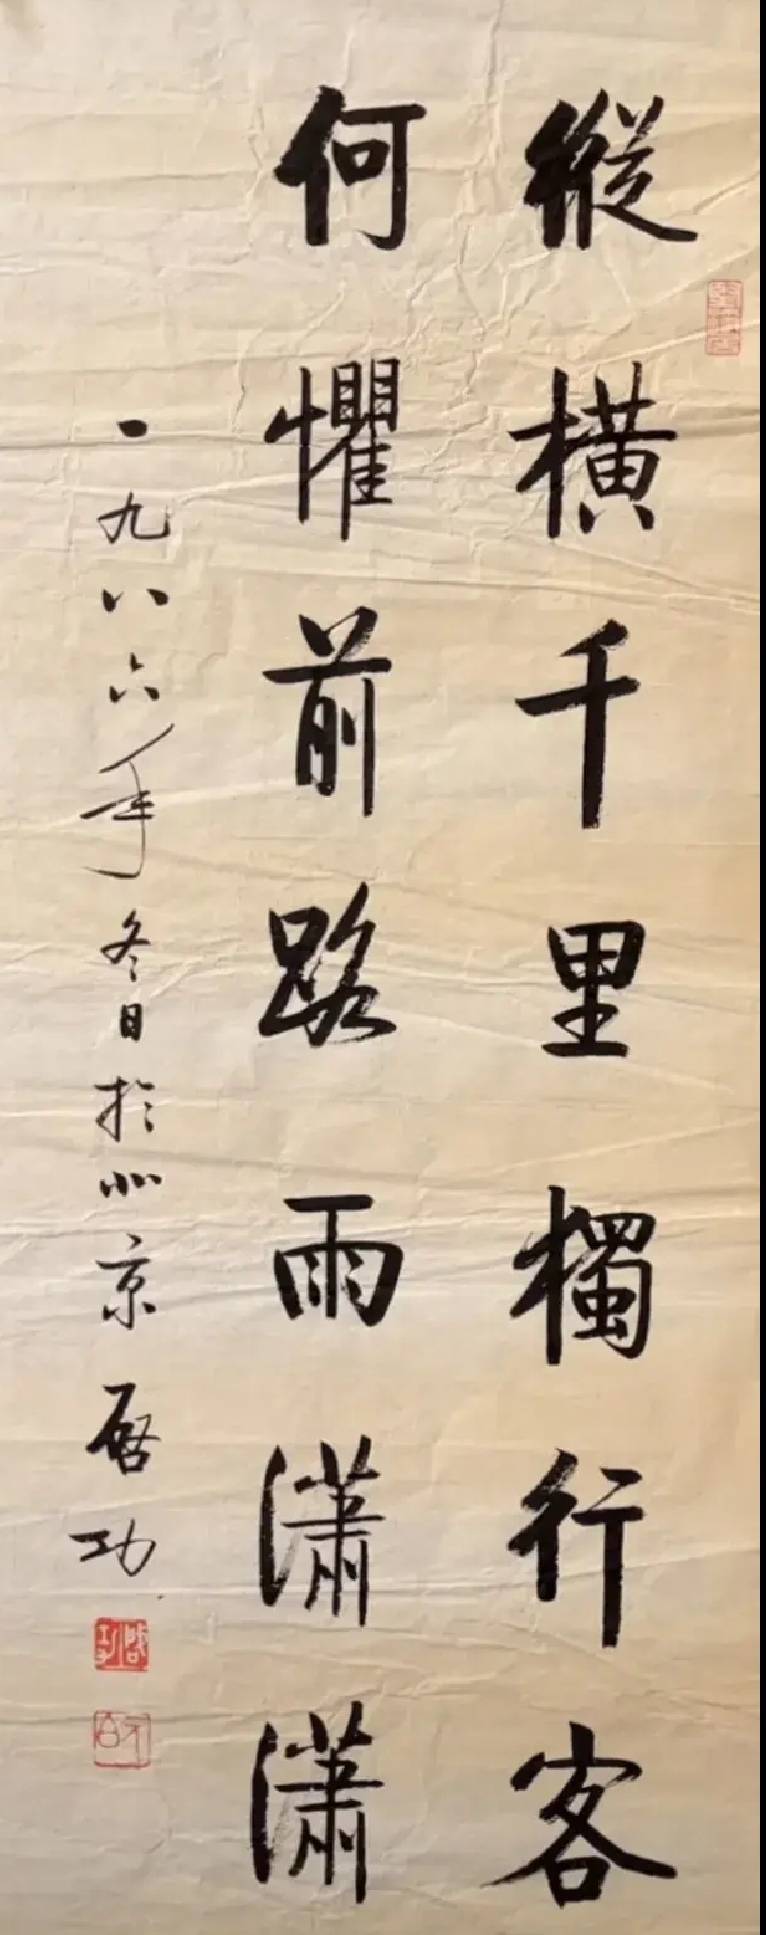 縱橫千里獨行客
何懼前路雨瀟瀟
一九八六年冬日於北京 啟功